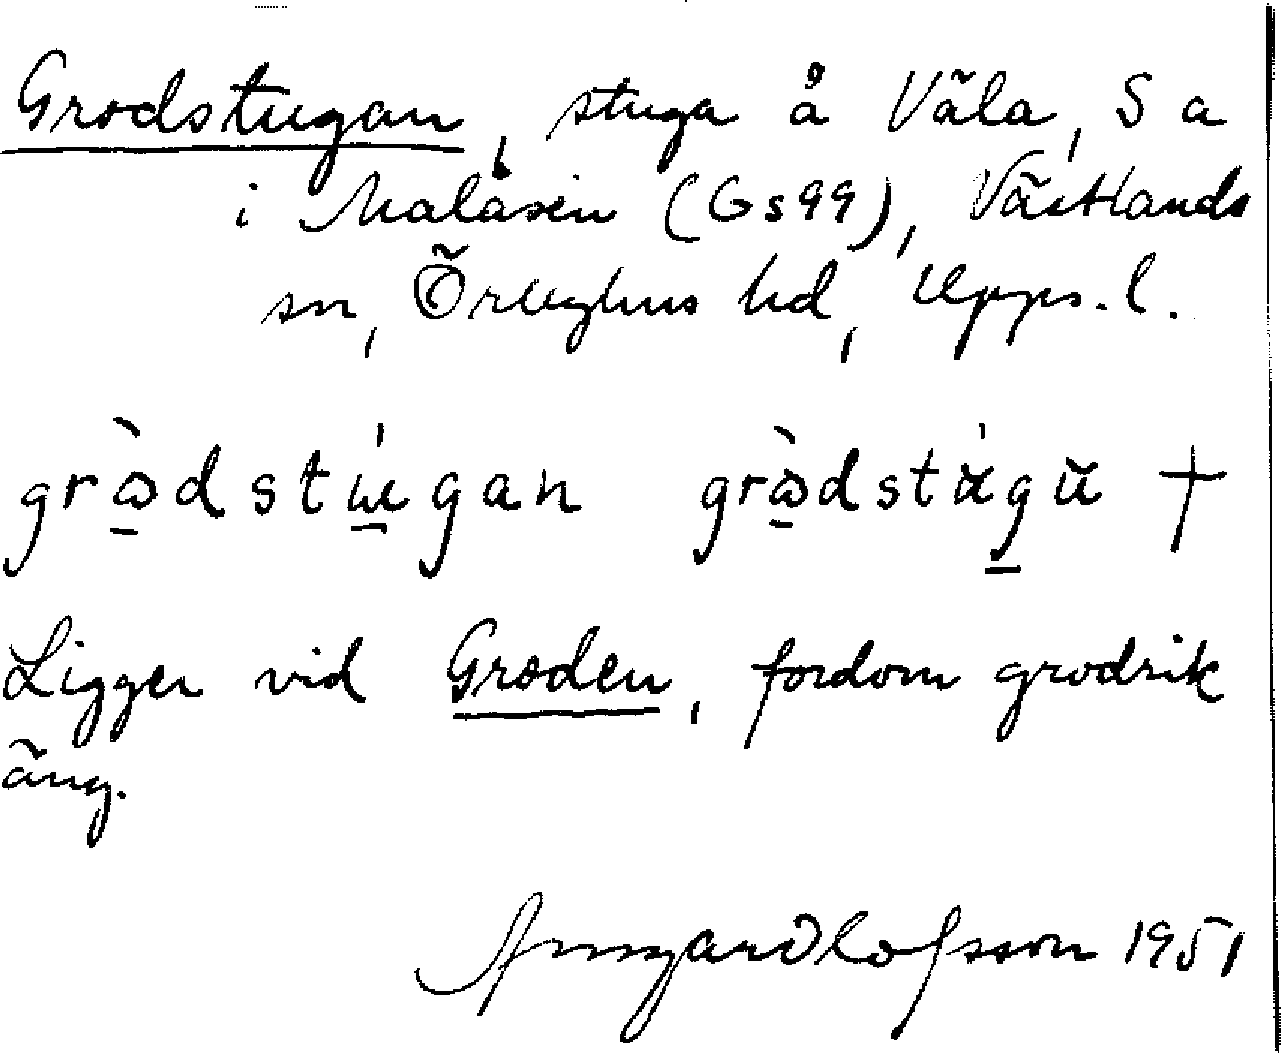 Grodstugan, stuga å Väla, S a
i Malåsen (Gs 99), Västlands
sn, Örbyhus hd, Upps. l.
grò̱dstú̱gan grò̱dstúgu †
Ligger vid Groden, fordom grodrik
äng.
Olofsson 1951